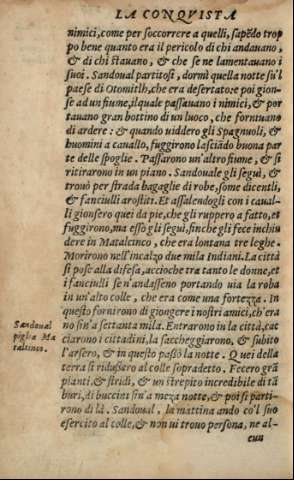 LA CONQVISTA
nimici, come per soccorrere a quelli, sapẽdo trop
po bene quanto era il pericolo di chi andauano,
& di chi stauano, & che se ne lamentauano i
suoi. Sandoual partitosi, dormì quella notte sù'l
paese di Otomitlh, che era desertato: e poi gion-
se ad un fiume, ilquale passauano i nimici, & por
tauano gran bottino di un luoco, che forniuano
di ardere: & quando uiddero gli Spagnuoli, &
huomini a cauallo, fuggirono lasciãdo buona par
te delle spoglie. Passarono un'altro fiume, & si
ritirarono in un piano. Sandouale gli seguì, &
trouò per strada bagaglie di robe, some di centli,
& fanciulli arostiti. Et assalendogli con i caual-
li gionsero quei da pie, che gli ruppero a fatto, et
fuggirono, ma esso gli seguì, finche gli fece inchiu
dere in Matalcinco, che era lontana tre leghe.
Morirono nell'incalzo due mila Indiani. La città
si pose alla difesa, accioche tra tanto le donne, et
i fanciulli se n'andasseno portando uia la roba
in un'alto colle, che era come una fortezza. In
questo fornirono di giongere i nostri amici, ch'era
no sin'a settanta mila. Entrarono in la città, cac
ciarono i cittadini, la saccheggiarono, & subito
l'arsero, & in questo passò la notte. Quei della
terra si ridussero al colle sopradetto. Fecero grã
pianti, & stridi, & un strepito incredibile di tã
buri, di buccini sin'a meza notte, & poi si parti-
rono di là. Sandoual, la mattina andò co'l suo
esercito al colle, & non ui trouò persona, ne al-
cun
Sandoual
piglia Ma
talcinco.